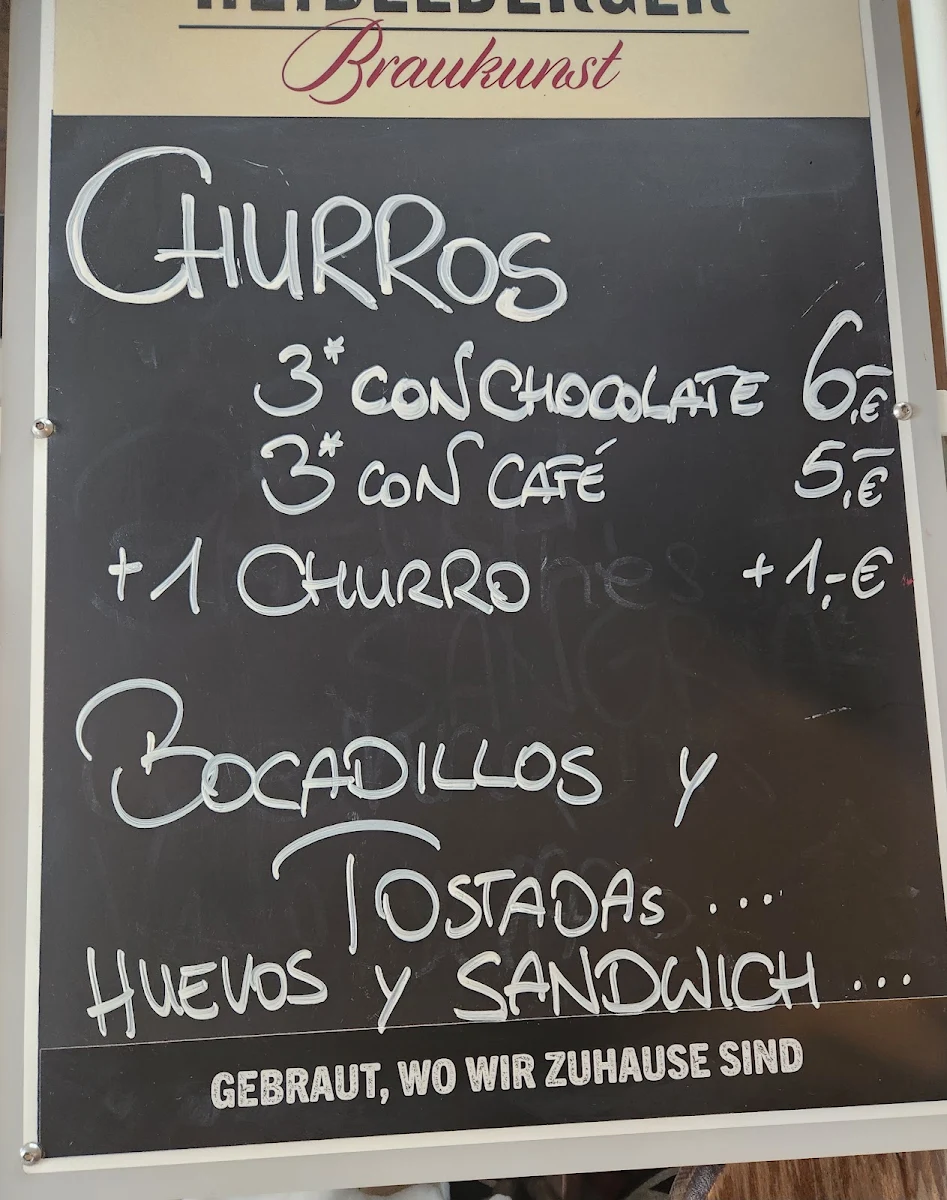 HEIDELBERGER
Braukunst
CHURROS
3* CON CHOCOLATE 6,-€
3* CON CAFÉ 5,-€
+1 CHURRO +1,-€
BOCADILLOS Y
TOSTADAS ...
HUEVOS Y SANDWICH ...
GEBRAUT, WO WIR ZUHAUSE SIND